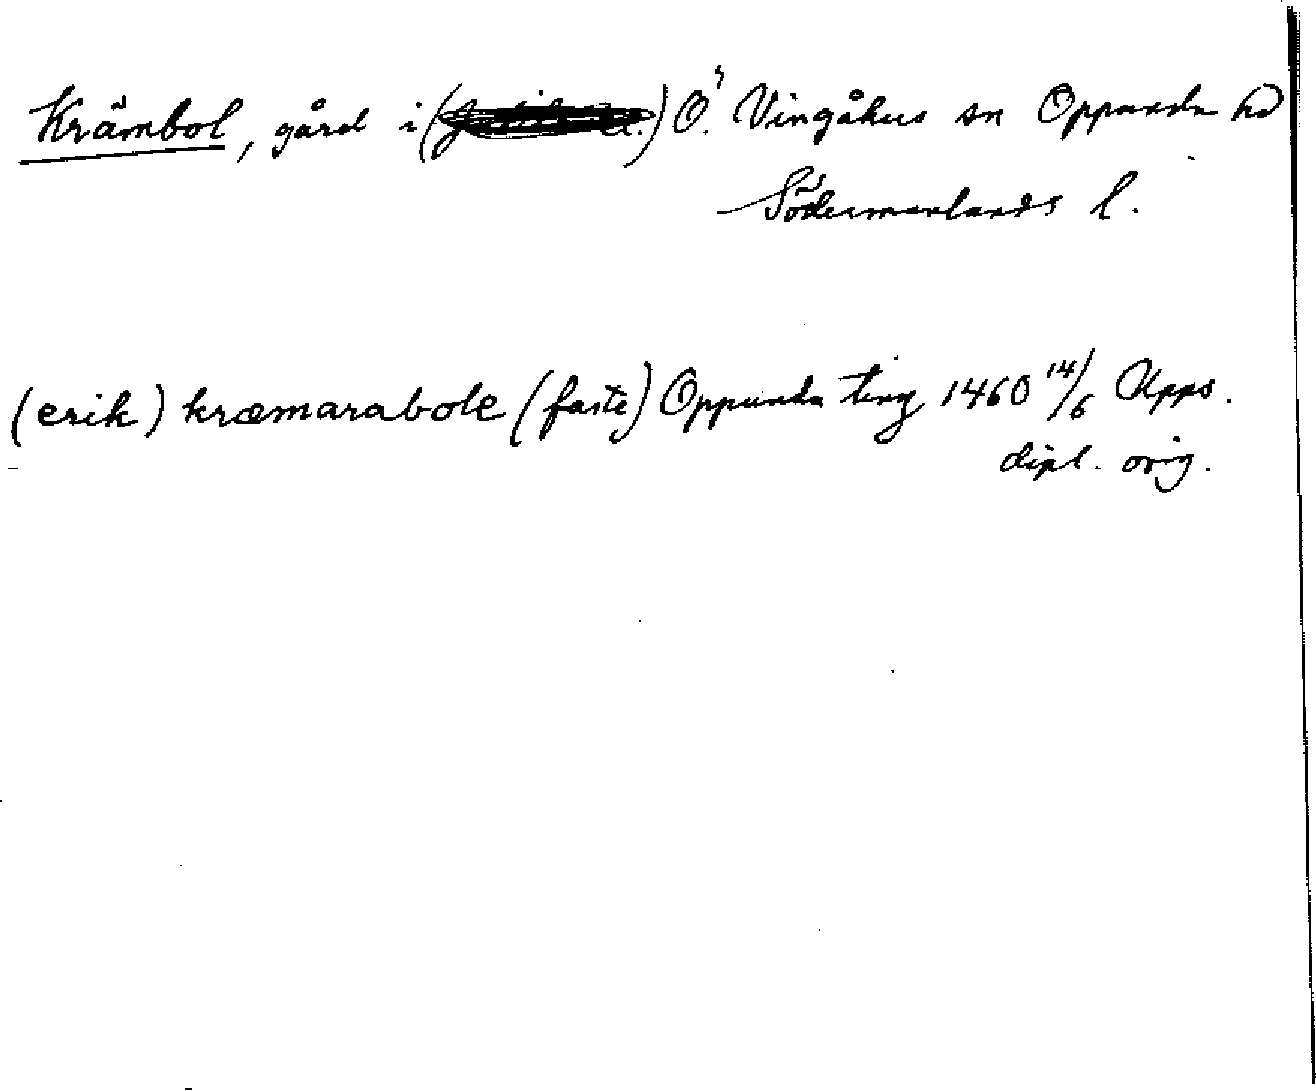 Krämbol, gård i () Ö. Vingåkers sn Oppunda hd
Södermanlands l.
(erik) kræmarabole (faste) Oppunda ting 1460 14/6 Upps.
dipl. orig.